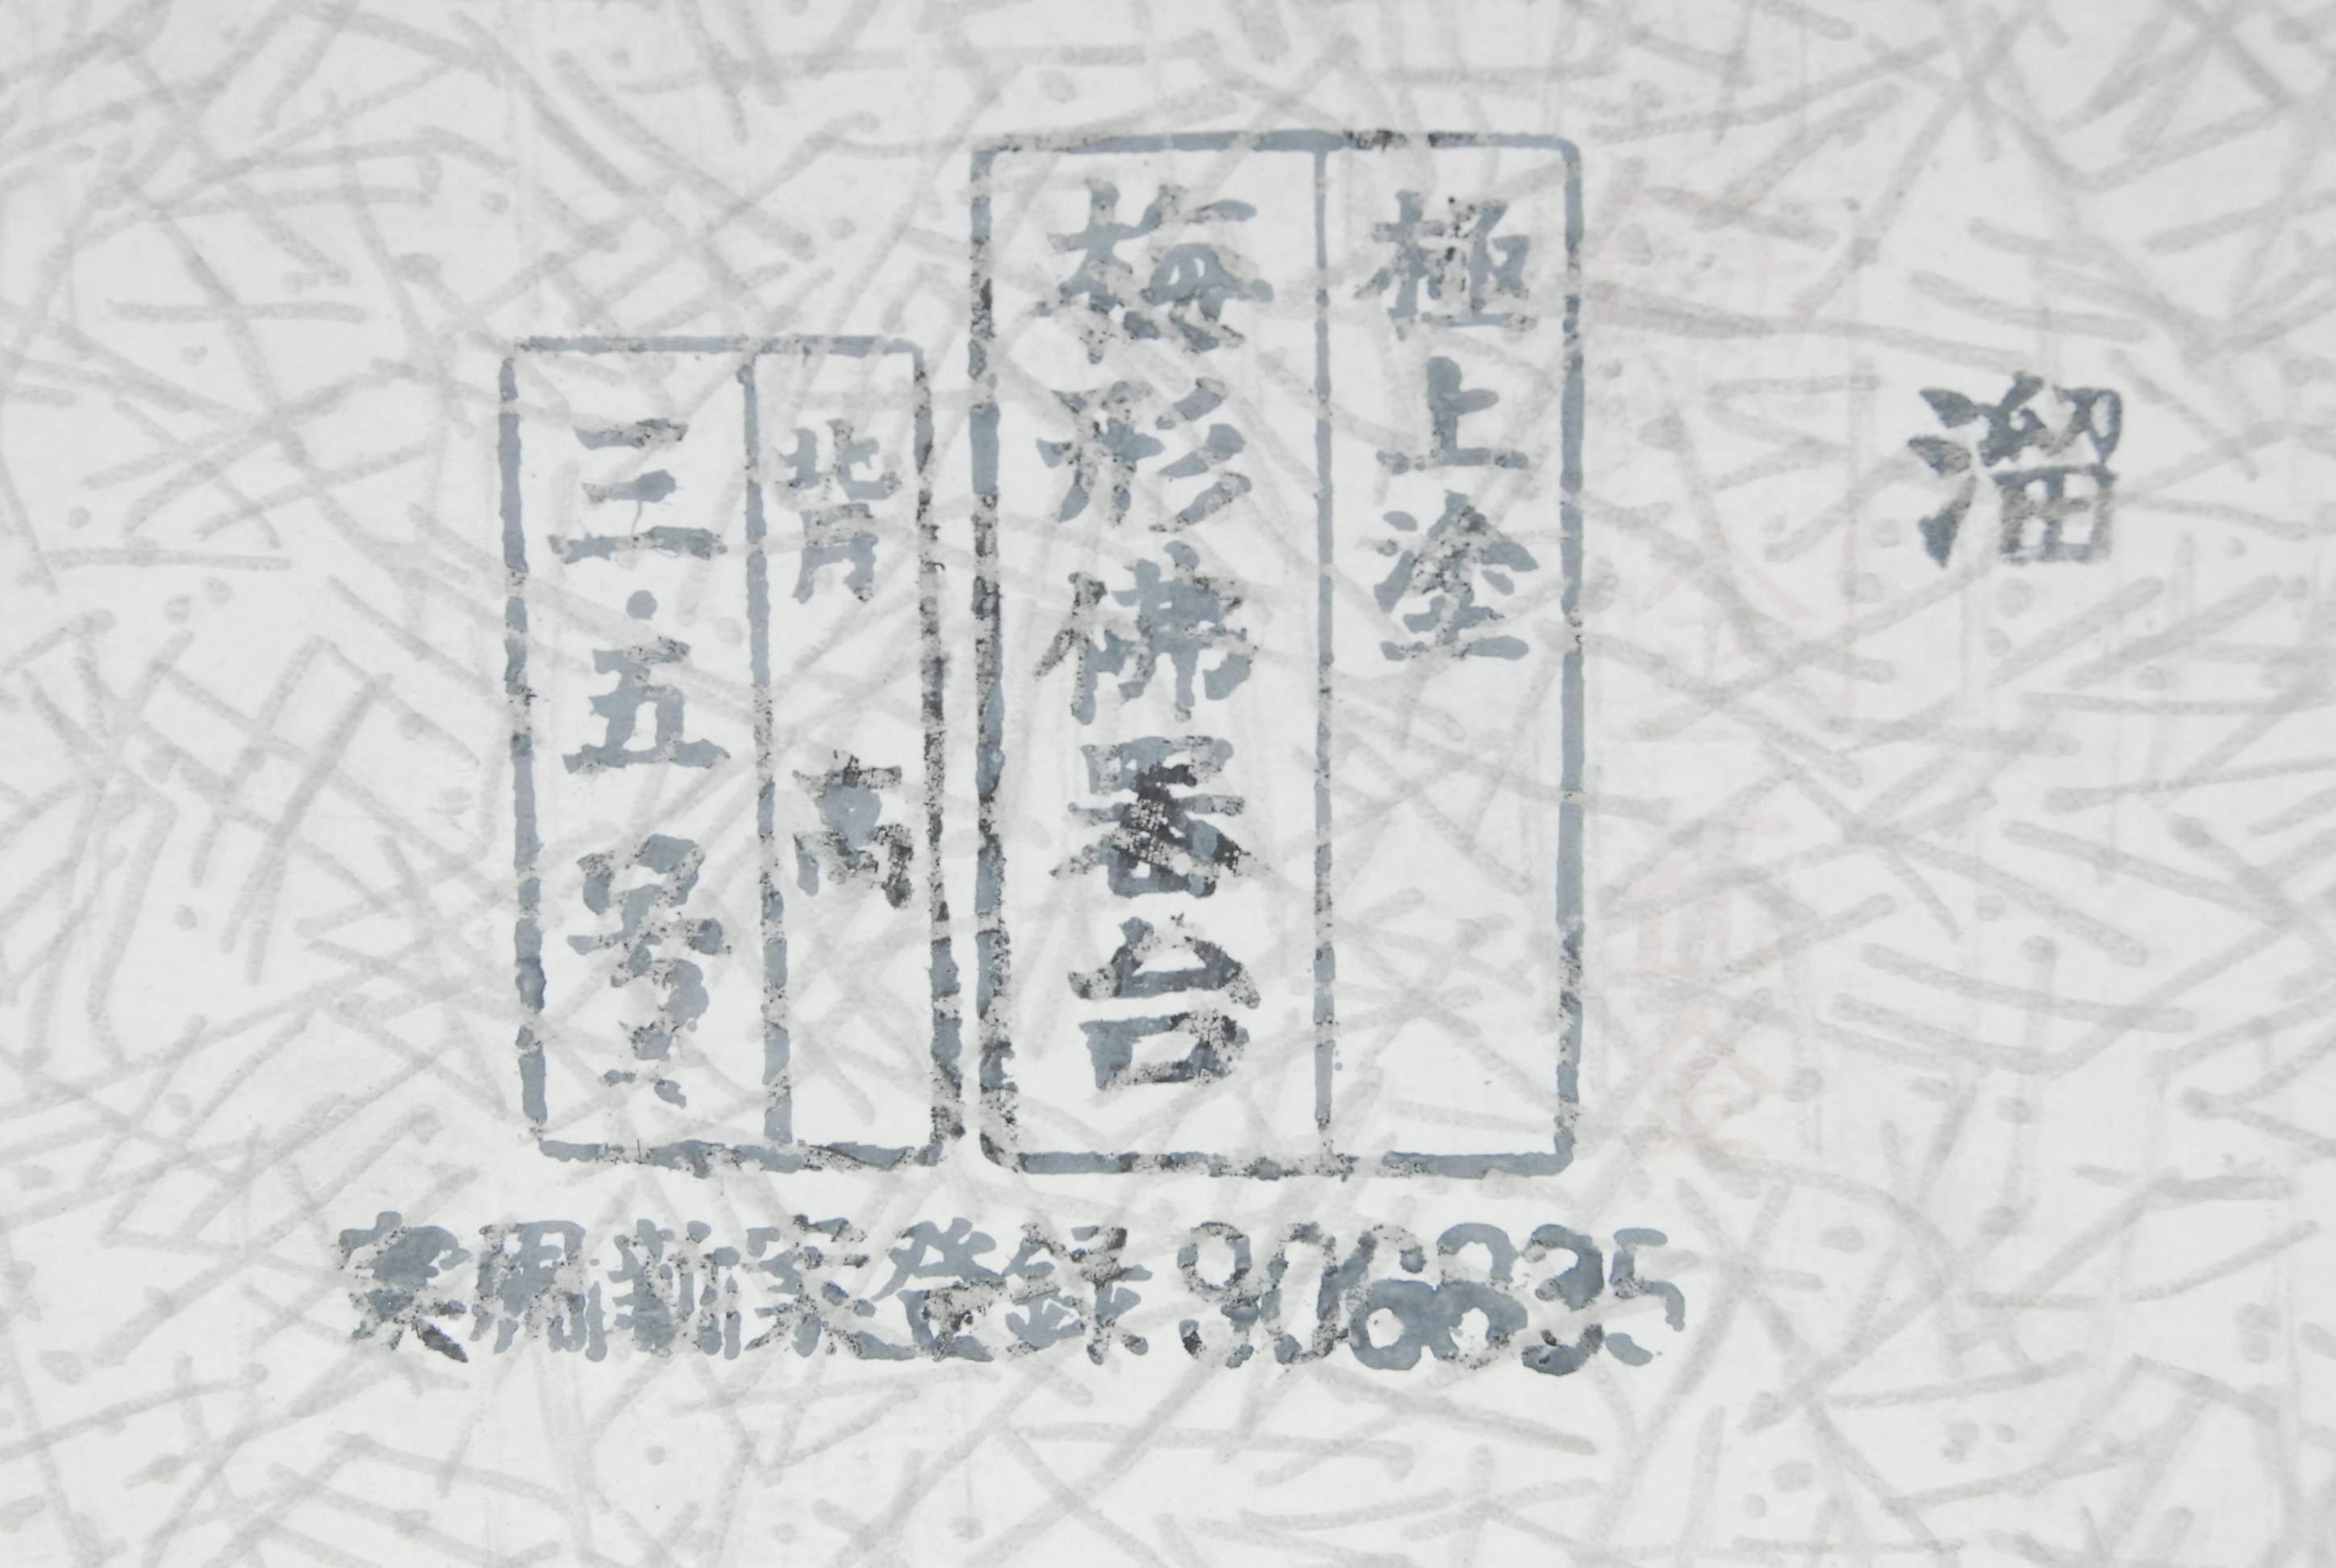 溜
極上塗
梅形佛器台
背高
三・五号
実用新案登録 906835